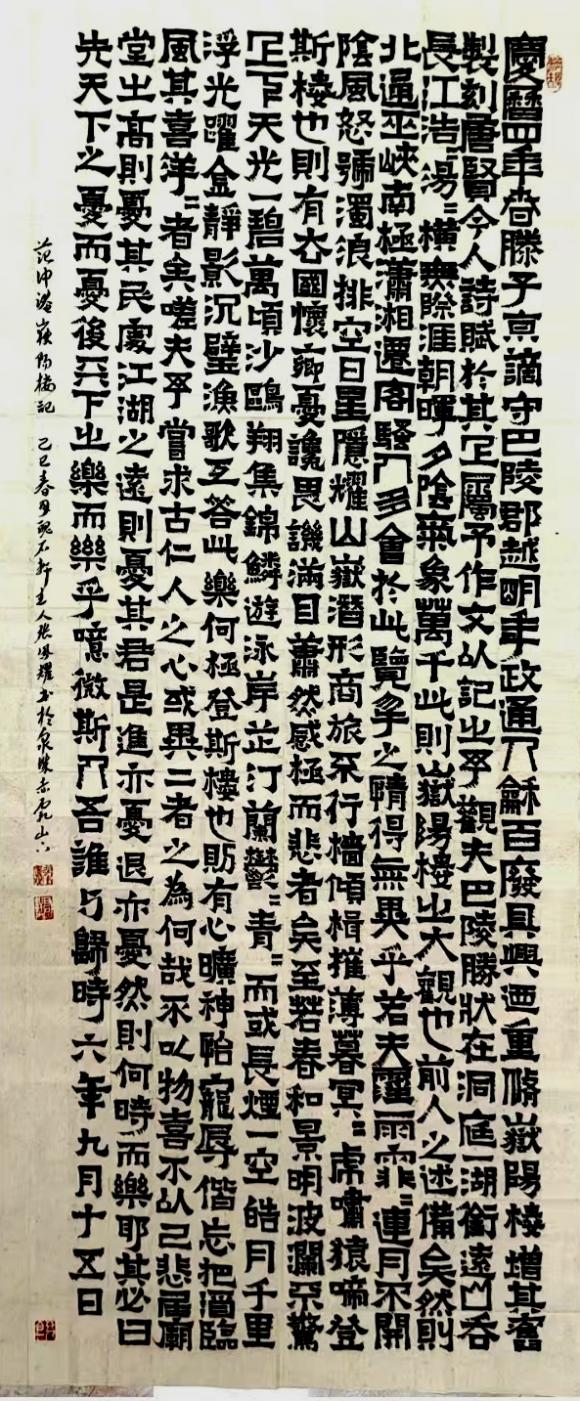 慶曆四年春滕子京謫守巴陵郡越明年政通人龢百廢具興迺重脩嶽陽樓增其舊
製刻唐賢今人詩賦於其上屬予作文以記之予觀夫巴陵勝狀在洞庭一湖銜遠山吞
長江浩〻湯〻橫無際涯朝暉夕陰氣象萬千此則嶽陽樓之大觀也前人之述備矣然則
北通巫峽南極瀟湘遷客騷人多會於此覽物之情得無異乎若夫霪雨霏〻連月不開
陰風怒號濁浪排空日星隱耀山嶽潛形商旅不行檣傾楫摧薄暮冥〻虎嘯猿啼登
斯樓也則有去國懷鄉憂讒畏譏滿目蕭然感極而悲者矣至若春和景明波瀾不驚
上下天光一碧萬頃沙鷗翔集錦鱗遊泳岸芷汀蘭鬱〻青〻而或長煙一空皓月千里
浮光躍金靜影沉璧漁歌互答此樂何極登斯樓也則有心曠神怡寵辱偕忘把酒臨
風其喜洋〻者矣嗟夫予嘗求古仁人之心或異二者之為何哉不以物喜不以己悲居廟
堂之高則憂其民處江湖之遠則憂其君是進亦憂退亦憂然則何時而樂耶其必曰
先天下之憂而憂後天下之樂而樂乎噫微斯人吾誰与歸時六年九月十五日
范仲淹嶽陽樓記 己巳春月醜石軒主人張耀書於泉城山下